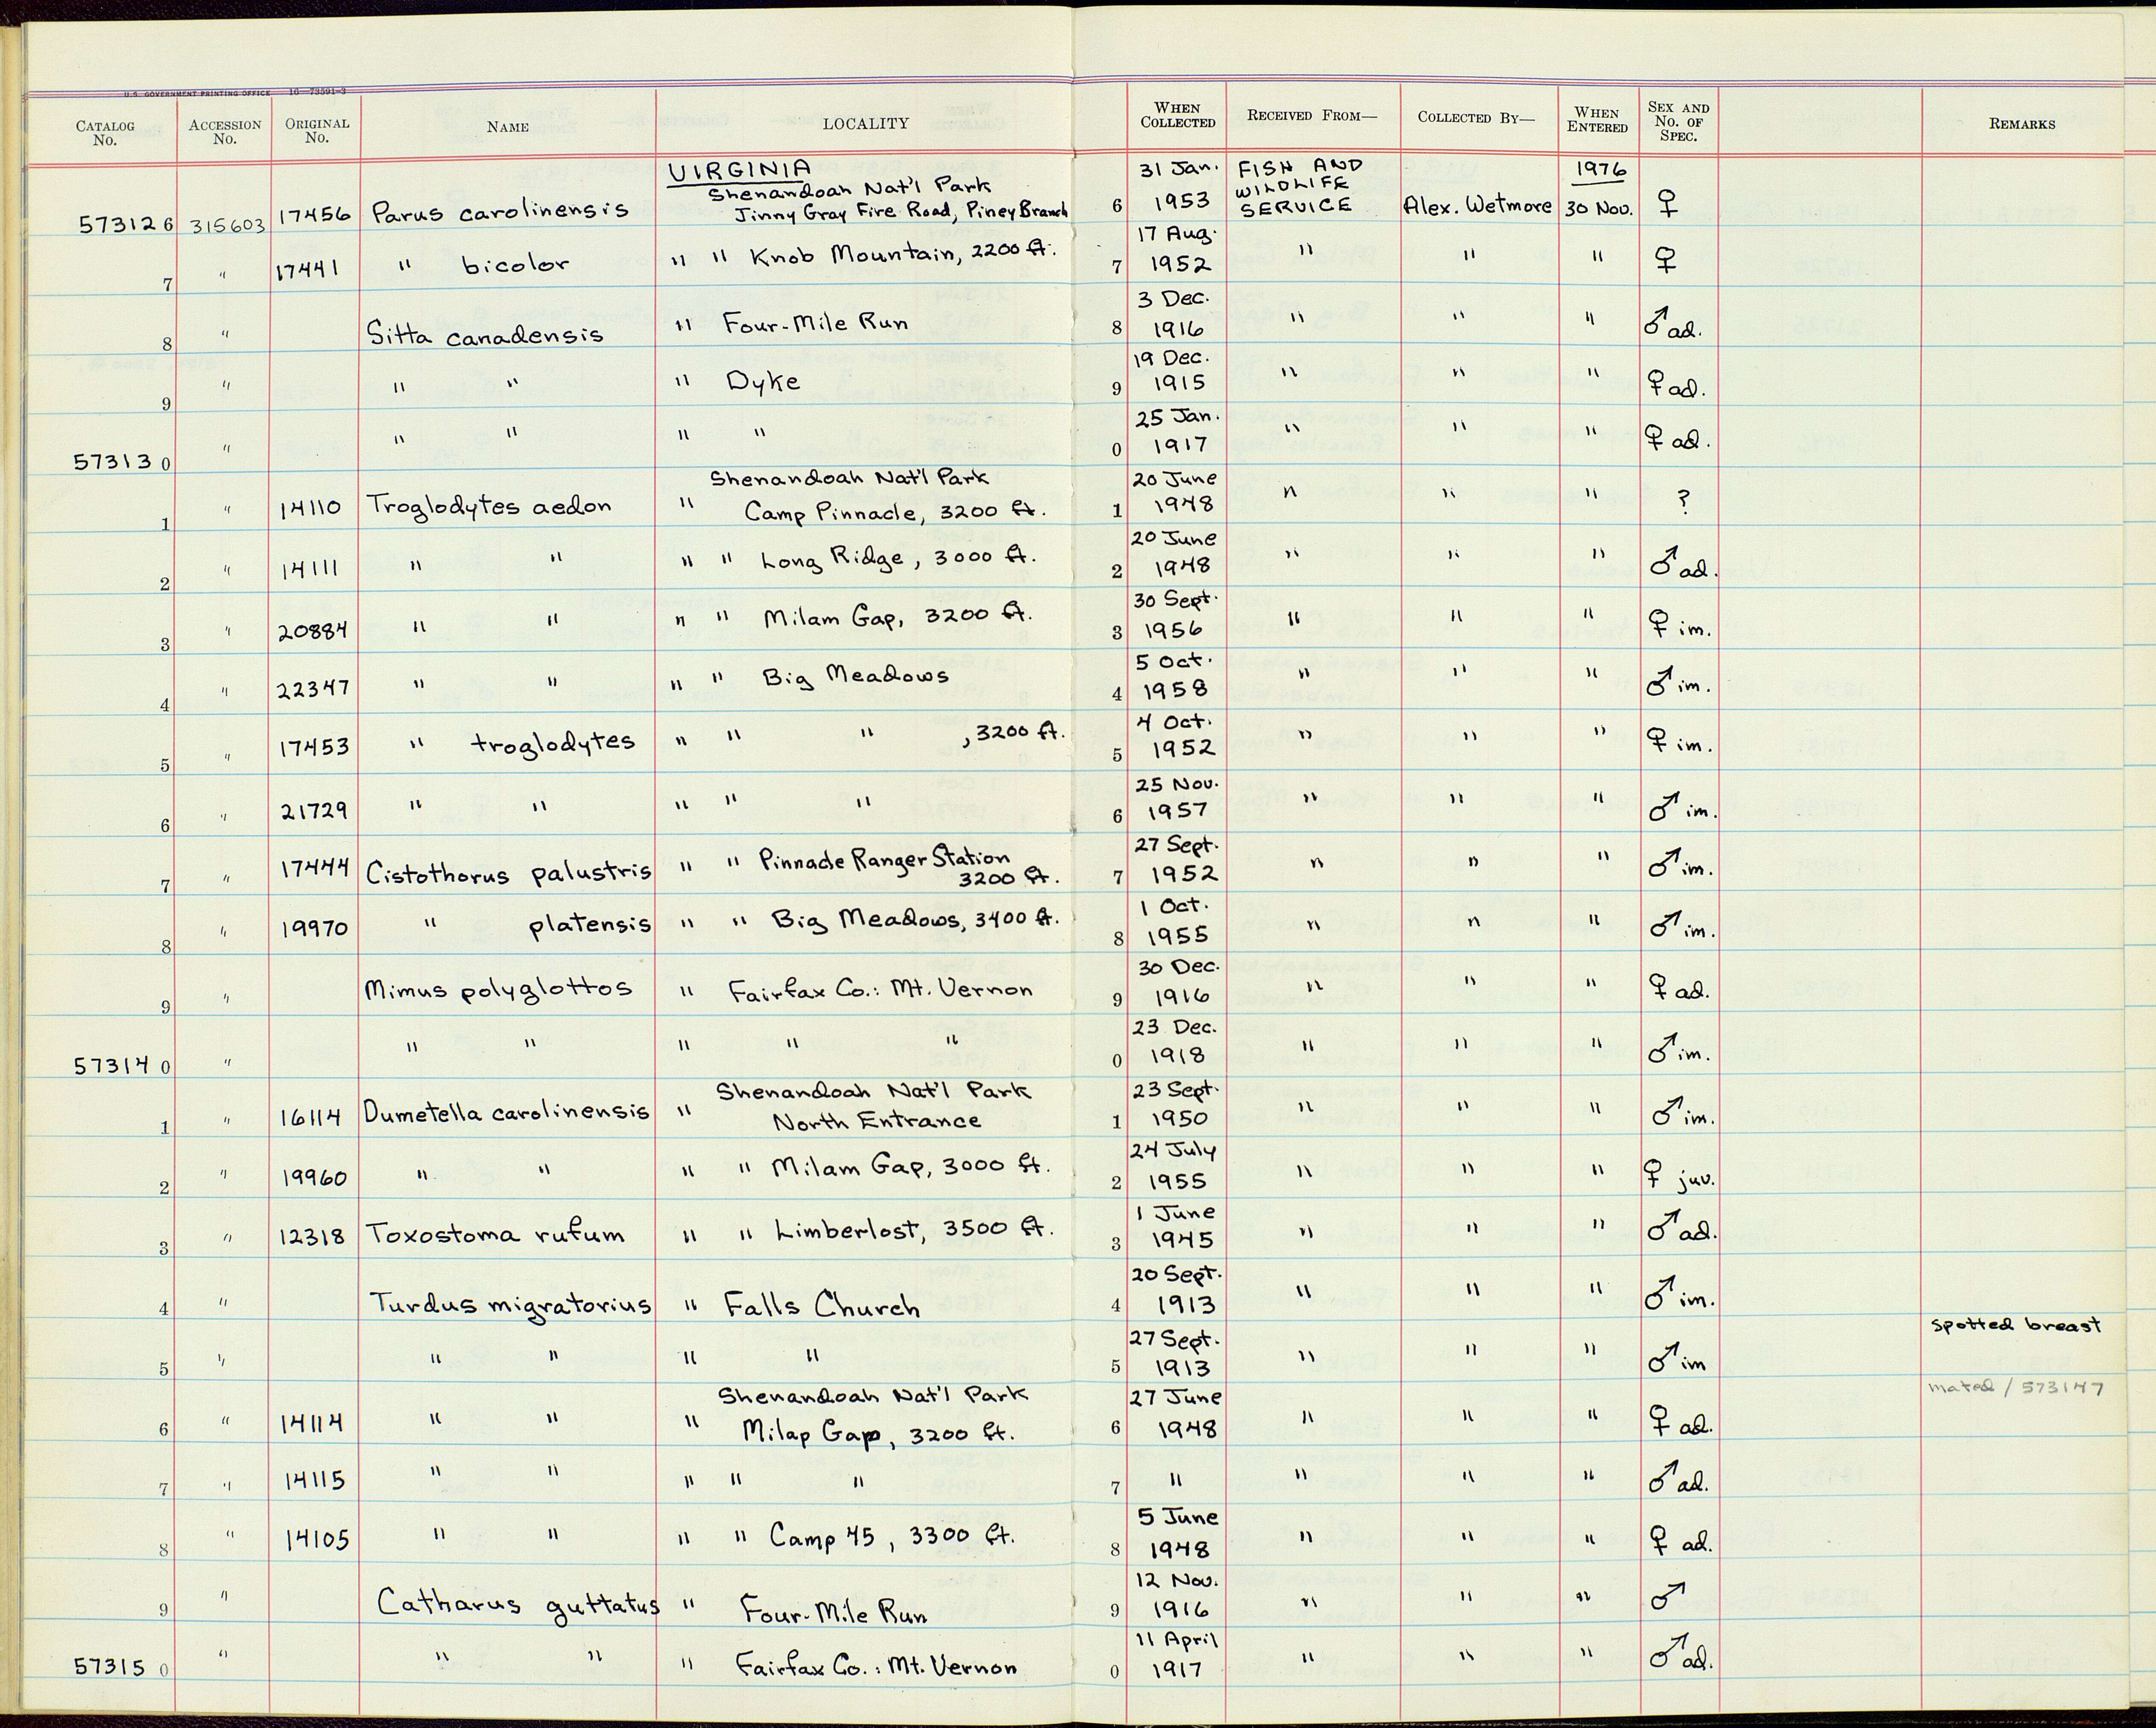 U.S. GOVERNMENT PRINTING OFFICE 16—73591-3
CATALOG No. ACCESSION No. ORIGINAL No. NAME LOCALITY WHEN COLLECTED RECEIVED FROM— COLLECTED BY— WHEN ENTERED SEX AND No. OF SPEC. REMARKS
VIRGINIA 31 Jan. FISH AND 1976
Shenandoah Nat'l Park WILDLIFE
573126 315603 17456 Parus carolinensis Jinny Gray Fire Road, Piney Branch 6 1953 SERVICE Alex. Wetmore 30 Nov. ♀
17 Aug.
7 " 17441 " bicolor " " Knob Mountain, 2200 ft. 7 1952 " " " ♀
3 Dec.
8 " Sitta canadensis " Four-Mile Run 8 1916 " " " ♂ ad.
19 Dec.
9 " " " " Dyke 9 1915 " " " ♀ ad.
25 Jan.
573130 " " " " " 0 1917 " " " ♀ ad.
Shenandoah Nat'l Park 20 June
1 " 14110 Troglodytes aedon " Camp Pinnacle, 3200 ft. 1 1948 " " " ?
20 June
2 " 14111 " " " " Long Ridge, 3000 ft. 2 1948 " " " ♂ ad.
30 Sept.
3 " 20884 " " " " Milam Gap, 3200 ft. 3 1956 " " " ♀ im.
5 Oct.
4 " 22347 " " " " Big Meadows 4 1958 " " " ♂ im.
4 Oct.
5 " 17453 " troglodytes " " " , 3200 ft. 5 1952 " " " ♀ im.
25 Nov.
6 " 21729 " " " " " 6 1957 " " " ♂ im.
" Pinnacle Ranger Station 27 Sept.
7 " 17444 Cistothorus palustris " 3200 ft. 7 1952 " " " ♂ im.
1 Oct.
8 " 19970 " platensis " " Big Meadows, 3400 ft. 8 1955 " " " ♂ im.
30 Dec.
9 " Mimus polyglottos " Fairfax Co.: Mt. Vernon 9 1916 " " " ♀ ad.
23 Dec.
573140 " " " " " " 0 1918 " " " ♂ im.
Shenandoah Nat'l Park 23 Sept.
1 " 16114 Dumetella carolinensis " North Entrance 1 1950 " " " ♂ im.
24 July
2 " 19960 " " " " Milam Gap, 3000 ft. 2 1955 " " " ♀ juv.
1 June
3 " 12318 Toxostoma rufum " " Limberlost, 3500 ft. 3 1945 " " " ♂ ad.
20 Sept.
4 " Turdus migratorius " Falls Church 4 1913 " " " ♂ im.
27 Sept. spotted breast
5 " " " " " 5 1913 " " " ♂ im
Shenandoah Nat'l Park 27 June mated / 573147
6 " 14114 " " " Milap Gap, 3200 ft. 6 1948 " " " ♀ ad.
7 " 14115 " " " " " 7 " " " " ♂ ad.
5 June
8 " 14105 " " " " Camp 45, 3300 ft. 8 1948 " " " ♀ ad.
12 Nov.
9 " Catharus guttatus " Four-Mile Run 9 1916 " " " ♂
11 April
573150 " " " " Fairfax Co.: Mt. Vernon 0 1917 " " " ♂ ad.